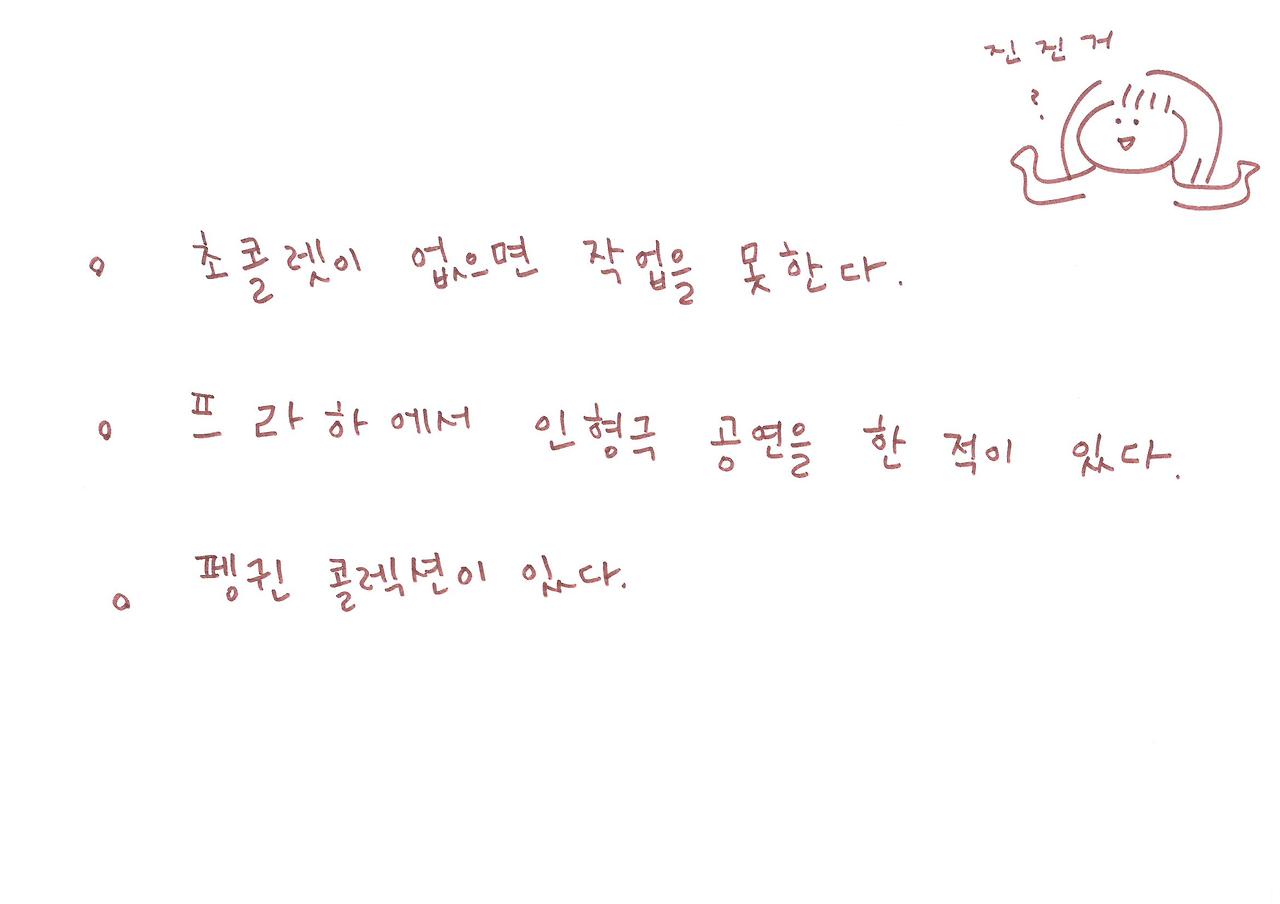 진진거
?
초콜렛이 없으면 작업을 못한다.
프라하에서 인형극 공연을 한 적이 있다.
펭귄 콜렉션이 있다.